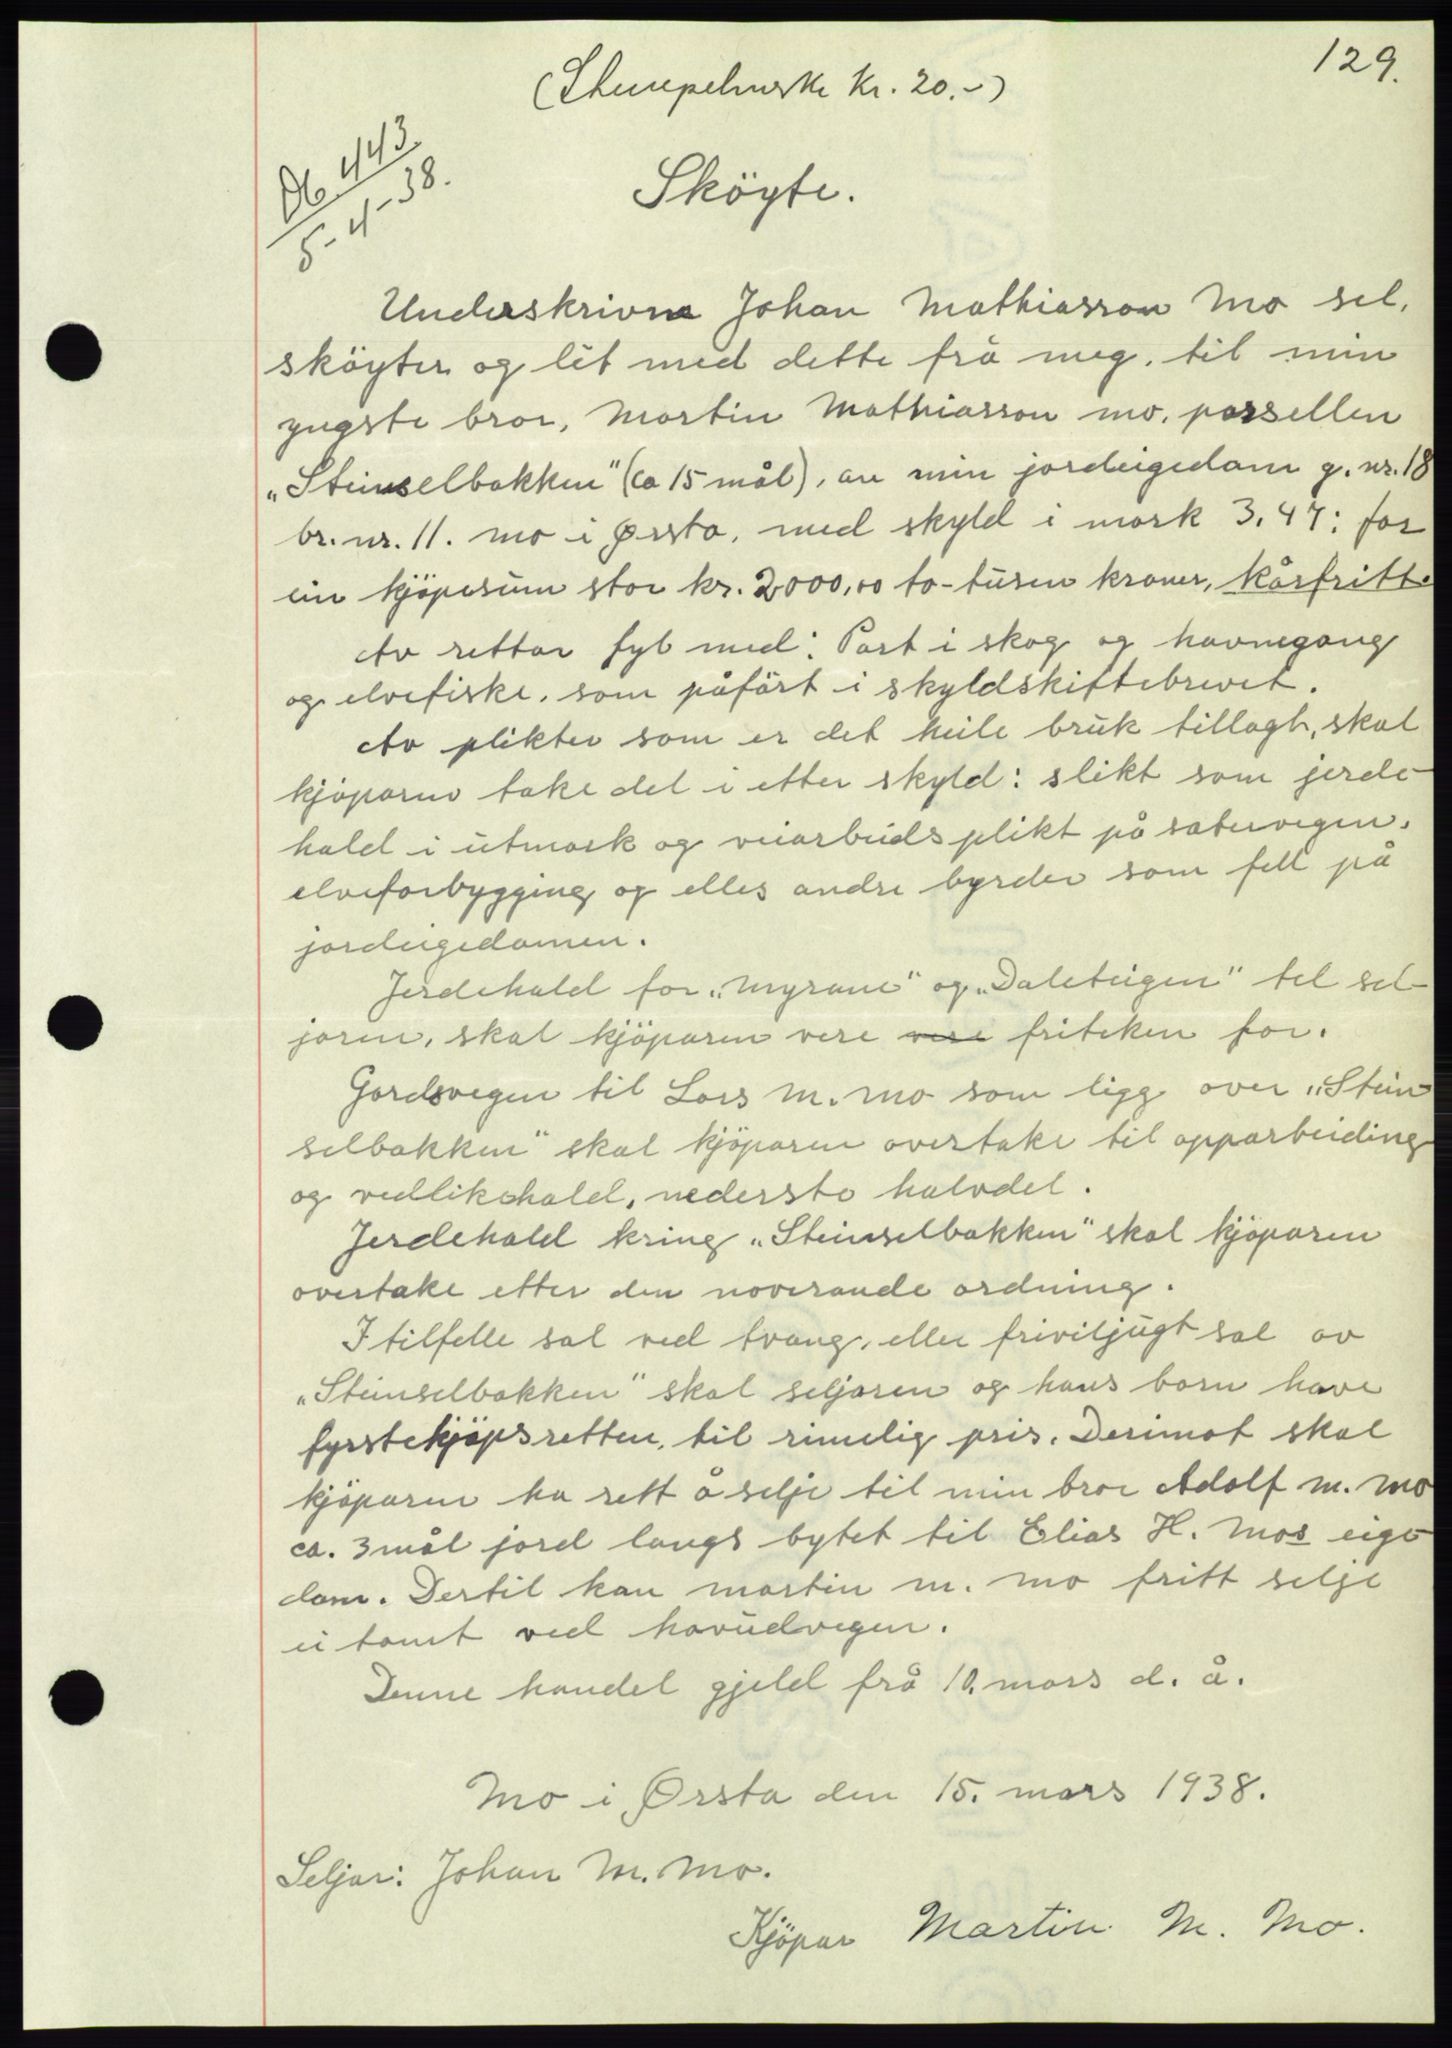 129.
(Stempelmerke kr. 20.-)
Db 443
5-4-38.
Sköyte.
Underskrivne Johan Mathiasson Mo sel,
sköyter og lèt med dette frå meg, til min
yngste bror, Martin Mathiasson Mo, parsellen
„Steinselbakken" (ca 15 mål), av min jordeigedom g. nr. 18
br. nr. 11. Mo i Ørsta, med skyld i mark 3.47: for
ein kjöpesum stor kr. 2000,00 to-tusen kroner, kårfritt.
Av rettar fyl med: Part i skog og havnegong
og elvefiske, som påfört i skyldskiftebrevet.
Av plikter som er det heile bruk tillagt, skal
kjöparen take del i etter skyld: slikt som jerde-
hald i utmark og veiarbeidsplikt på sætervegen,
elveforbygging og elles andre byrder som fell på
jordeigedomen.
Jerdehald for „Myrane" og „Daleteigen" tel sel-
jaren, skal kjöparen vere vere friteken for.
Gardsvegen til Lars M. Mo som ligg over „Stein-
selbakken" skal kjöparen overtake til opparbeiding
og vedlikehald, nedersto halvdel.
Jerdehald kring „Steinselbakken" skal kjöparen
overtake etter den noverande ordning.
I tilfelle sal ved tvang, eller friviljugt sal av
„Steinselbakken" skal seljaren og hans born have
fyrstekjöpsretten, til rimelig pris. Derimot skal
kjöparen ha rett å selje til min bror Adolf M. Mo
ca. 3 mål jord langs bytet til Elias H. Mos eige-
dom. Dertil kan Martin M. Mo fritt selje
ei tomt ved hovudvegen.
Denne handel gjeld frå 10. mars d. å.
Mo i Ørsta den 15. mars 1938.
Seljar: Johan M. Mo.
Kjöpar Martin M. Mo.